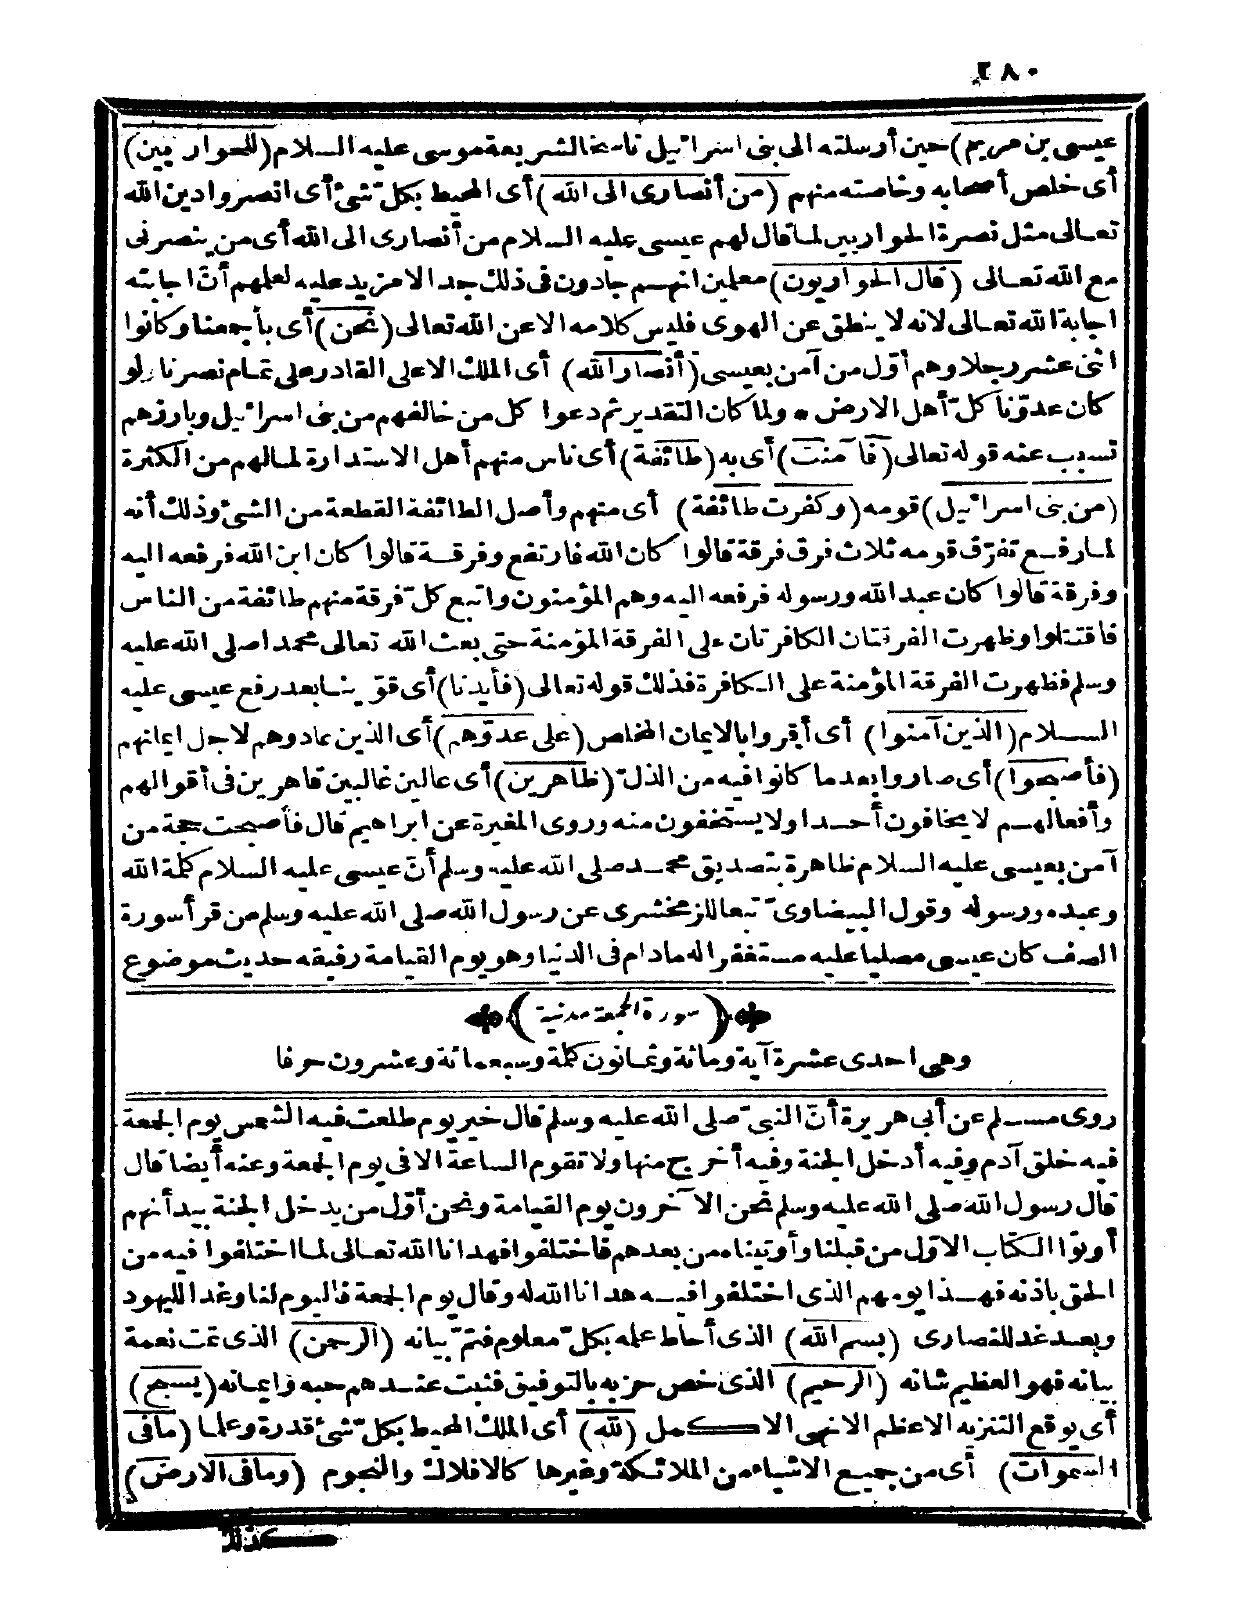 ٢٨٠
عيسى بن مريم) حين أرسلته الى بنى اسرائيل ناسخا لشريعة موسى عليه السلام (للحواريين)
أى خلص أصحابه وخاصته منهم (من أنصارى الى الله) أى المحيط بكل شئ أى انصروا دين الله
تعالى مثل نصرة الحواريين لما قال لهم عيسى عليه السلام من أنصارى الى الله أى من ينصرنى
مع الله تعالى (قال الحواريون) معلمين انهم جادون فى ذلك جدا لا مزيد عليه لعلمهم أنّ اجابته
اجابة الله تعالى لانه لا ينطق عن الهوى فليس كلامه الا عن الله تعالى (نحن) أى بأجمعنا وكانوا
اثنى عشر رجلا وهم أوّل من آمن بعيسى (أنصار الله) أى الملك الاعلى القادر على تمام نصرنا ولو
كان عدوّنا كلّ أهل الارض * ولما كان التقدير ثم دعوا كل من خالفهم من بنى اسرائيل وبارزهم
تسبب عنه قوله تعالى (فآمنت) أى به (طائفة) أى ناس منهم أهل الاستدارة لمالهم من الكثرة
(من بنى اسرائيل) قومه (وكفرت طائفة) أى منهم وأصل الطائفة القطعة من الشئ وذلك أنه
لما رفع تفرّق قومه ثلاث فرق فرقة قالوا كان الله فارتفع وفرقة قالوا كان ابن الله فرفعه اليه
وفرقة قالوا كان عبد الله ورسوله فرفعه اليه وهم المؤمنون واتبع كلّ فرقة منهم طائفة من الناس
فاقتتلوا وظهرت الفرقتان الكافرتان على الفرقة المؤمنة حتى بعث الله تعالى محمدا صلى الله عليه
وسلم فظهرت الفرقة المؤمنة على الكافرة فذلك قوله تعالى (فأيدنا) أى قوّينا بعد رفع عيسى عليه
السلام (الذين آمنوا) أى أقروا بالايمان المخلص (على عدوّهم) أى الذين عادوهم لاجل ايمانهم
(فأصبحوا) أى صاروا بعدما كانوا فيه من الذلّ (ظاهرين) أى عالين غالبين قاهرين فى أقوالهم
وأفعالهم لا يخافون أحدا ولا يستخفون منه وروى المغيرة عن ابراهيم قال فأصبحت حجة من
آمن بعيسى عليه السلام ظاهرة بتصديق محمد صلى الله عليه وسلم أنّ عيسى عليه السلام كلمة الله
وعبده ورسوله وقول البيضاوىّ تبعا للزمخشرى عن رسول الله صلى الله عليه وسلم من قرأ سورة
الصف كان عيسى مصليا عليه مستغفرا له مادام فى الدنيا وهو يوم القيامة رفيقه حديث موضوع
(سورة الجمعة مدنية)
وهى احدى عشرة آية ومائة وثمانون كلمة وسبعمائة وعشرون حرفا
روى مسلم عن أبى هريرة أنّ النبىّ صلى الله عليه وسلم قال خير يوم طلعت فيه الشمس يوم الجمعة
فيه خلق آدم وفيه أدخل الجنة وفيه أخرج منها ولا تقوم الساعة الا فى يوم الجمعة وعنه أيضا قال
قال رسول الله صلى الله عليه وسلم نحن الآخرون يوم القيامة ونحن أوّل من يدخل الجنة بيد أنهم
أوتوا الكتاب الاوّل من قبلنا وأوتيناه من بعدهم فاختلفوا فهدانا الله تعالى لما اختلفوا فيه من
الحق باذنه فهذا يومهم الذى اختلفوا فيه هدانا الله له وقال يوم الجمعة فاليوم لنا وغدا لليهود
وبعد غد للنصارى (بسم الله) الذى أحاط علمه بكلّ معلوم فتمّ بيانه (الرحمن) الذى عمت نعمة
بيانه فهو العظيم شانه (الرحيم) الذى خص حزبه بالتوفيق فثبت عندهم حبه وايمانه (يسبح)
أى يوقع التنزيه الاعظم الانهى الاكمل (لله) أى الملك المحيط بكلّ شئ قدرة وعلما (ما فى
السموات) أى من جميع الاشياء من الملائكة وغيرها كالافلاك والنجوم (وما فى الارض)
كذلك